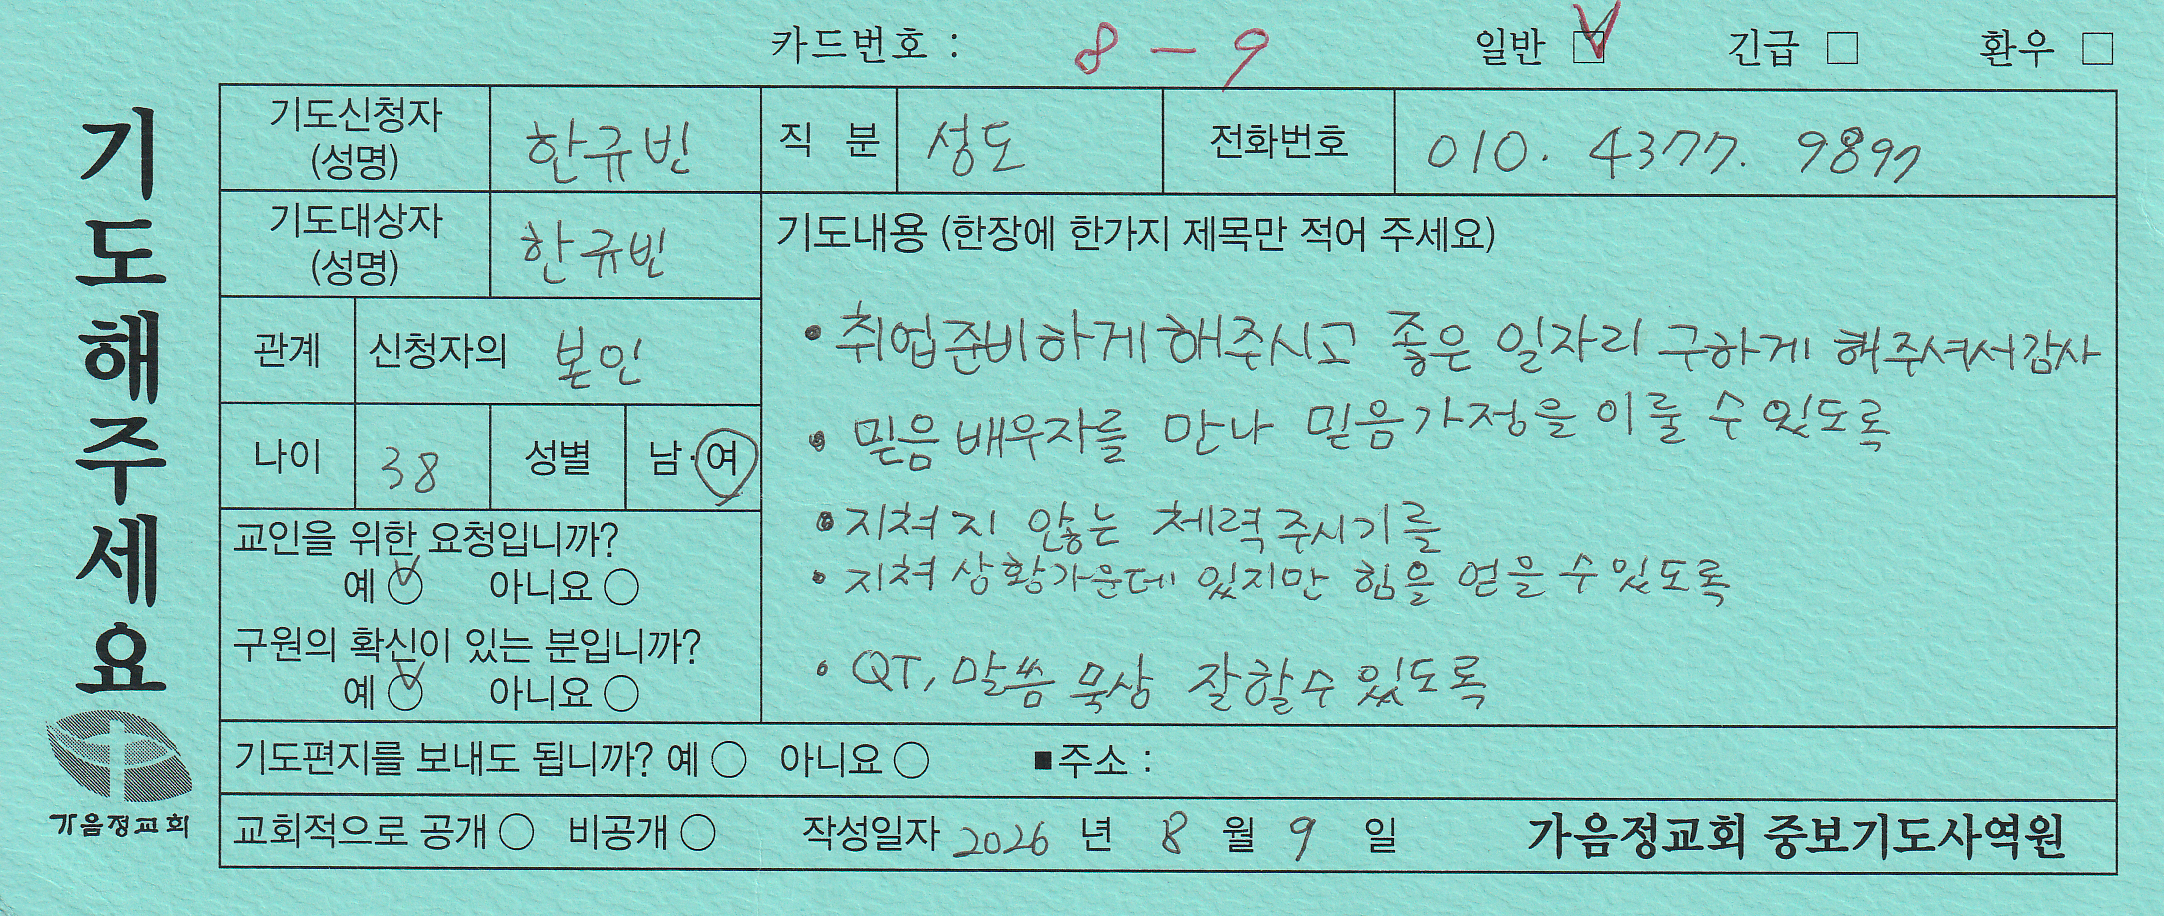 카드번호 : 8 - 9 일반 ☑ 긴급 □ 환우 □
기도해주세요
기도신청자 (성명) 한규빈 직 분 성도 전화번호 010. 4377. 9897
기도대상자 (성명) 한규빈
관계 신청자의 본인
나이 38 성별 남·여
교인을 위한 요청입니까?
예 ○ 아니요 ○
구원의 확신이 있는 분입니까?
예 ○ 아니요 ○
기도내용 (한장에 한가지 제목만 적어 주세요)
• 취업준비하게해주시고 좋은 일자리 구하게 해주셔서감사
• 믿음배우자를 만나 믿음가정을 이룰 수 있도록
• 지쳐지 않는 체력주시기를
• 지쳐 상황가운데 있지만 힘을 얻을수있도록
• QT, 말씀 묵상 잘할수 있도록
기도편지를 보내도 됩니까? 예 ○ 아니요 ○ ■주소 :
교회적으로 공개 ○ 비공개 ○ 작성일자 2026 년 8 월 9 일 가음정교회 중보기도사역원
가음정교회